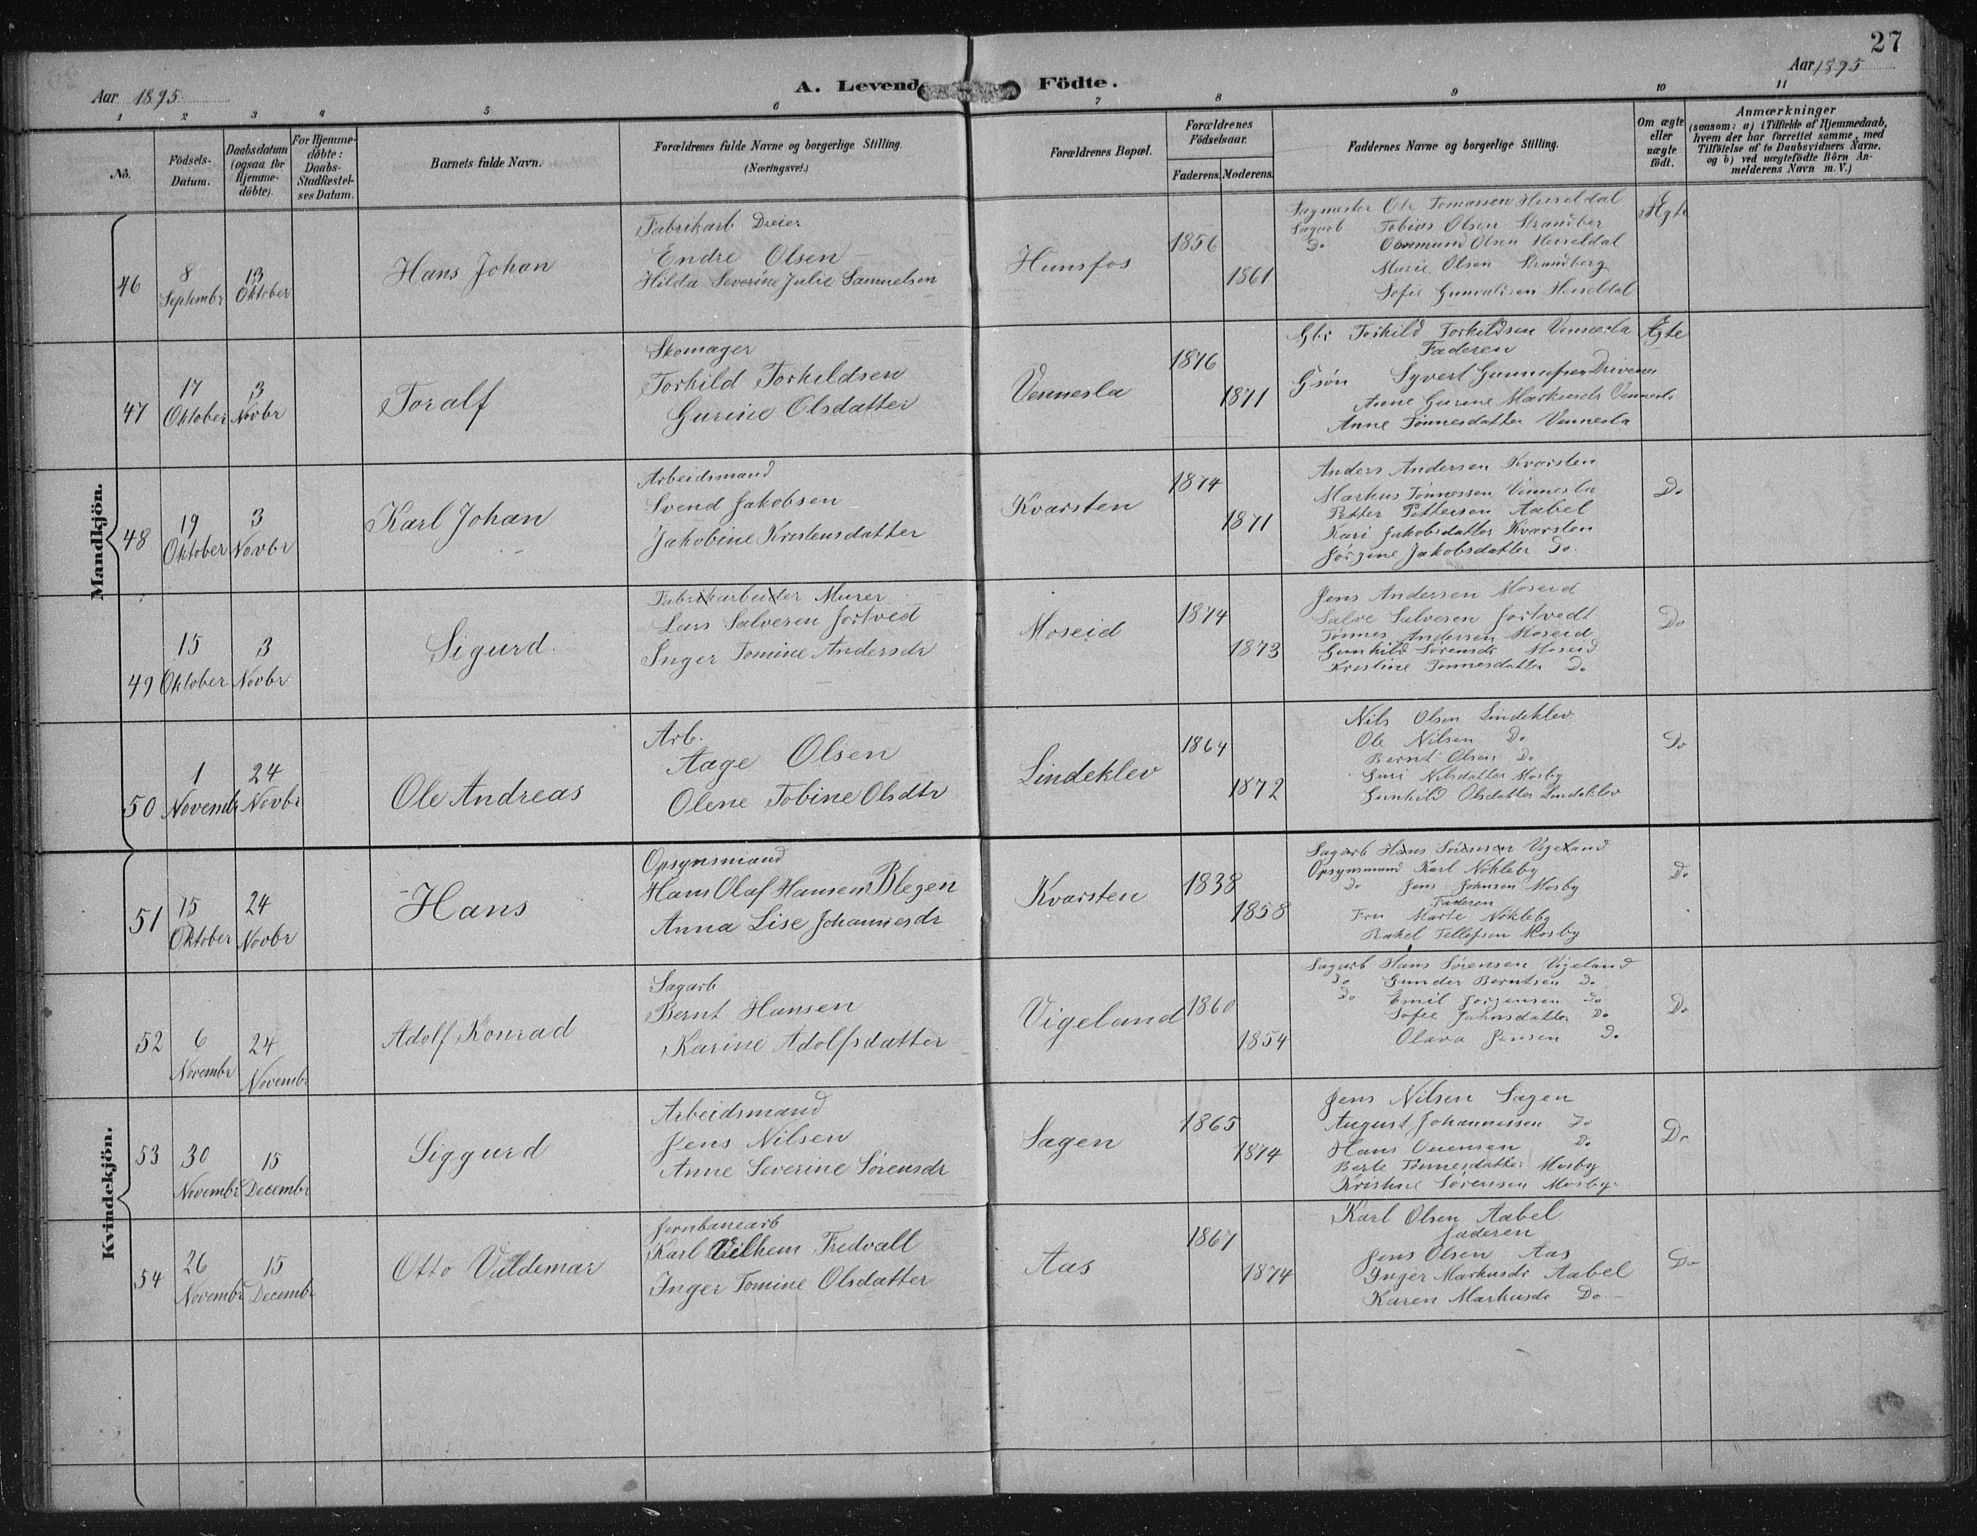 27
Aar 1895
A. Levende Födte.
Aar 1895
1 2 3 4 5 6 7 8 9 10 11
No.
Födsels-Datum.
Daabsdatum (ogsaa for Hjemme-döbte).
For Hjemme-döbte: Daabs-Stadfæstel-ses Datum.
Barnets fulde Navn.
Forældrenes fulde Navne og borgerlige Stilling.
(Næringsvei.)
Forældrenes Bopæl.
Forældrenes Födselsaar.
Faderens. Moderens.
Faddernes Navne og borgerlige Stilling.
Om ægte eller uægte födt.
Anmærkninger
(saasom: a) i Tilfælde af Hjemmedaab,
hvem der har forrettet samme, med
Tilföielse af to Daabsvidners Navne.
og b) ved uægtefödte Börn An-
melderens Navn m. V.)
Mandkjön.
46
8 Septembr
13 Oktober
Hans Johan
Fabrikarb Dreier
Endre Olsen
Hilda Severine Julie Samuelsen
Hunsfos
1856
1861
Sagmester Ole Tomassen Heiseldal
Sagarb Tobias Olsen Strandber
Do Osmund Olsen Heiseldal
Marie Olsen Strandberg
Sofie Gunvaldsen Heiseldal
Ægte
47
17 Oktober
3 Novbr
Toralf
Skomager
Torkild Torkildsen
Gurine Olsdatter
Vennesla
1876
1871
Gbr Torkild Torkildsen Vennesla
Faderen
Gsøn Syvert Gunnufsen Drivenes
Anne Gurine Markusdr Vennesla
Anne Tønnesdatter Vennesla
Ægte
48
19 Oktober
3 Novbr
Karl Johan
Arbeidsmand
Svend Jakobsen
Jakobine Kristensdatter
Kvarsten
1874
1871
Anders Andersen Kvarsten
Markus Tønnessen Vennesla
Petter Pettersen Aabel
Kari Jakobsdatter Kvarsten
Jørgine Jakobsdatter Do.
Do
49
15 Oktober
3 Novbr
Sigurd.
Fabrikarbeider Murer
Lars Salvesen Jortved
Inger Tomine Andersdr
Moseid
1874
1873
Jens Andersen Moseid
Salve Salvesen Jortvedt
Tønnes Andersen Moseid
Gunhild Sørensdr Moseid
Kristine Tønnesdatter Do
Do
50
1 Novembr
24 Novbr
Ole Andreas
Arb.
Aage Olsen
Olene Tobine Olsdtr
Lindeklev
1864
1872
Nils Olsen Lindeklev
Ole Nilsen Do
Bernt Olsen Do
Guri Nilsdatter Mosby
Gunhild Olsdatter Lindeklev
Do
51
15 Oktober
24 Novbr
Hans
Opsynsmand
Hans Olaf Hansen Blegen
Anna Lise Johannesdr
Kvarsten
1838
1858
Sagarb Hans Sørensen Vigeland
Opsynsmand Karl Nøkleby
Do Jens Johnsen Mosby
Faderen
Fru Marte Nøkleby
Rakel Tellefsen Mosby
Do
52
6 Novembr
24 Novembr
Adolf Konrad
Sagarb
Bernt Hansen
Karine Adolfsdatter
Vigeland
1860
1854
Sagarb Hans Sørensen Vigeland
Do Gunder Berntsen Do
Do Emil Jørgensen Do
Sofie Jahnsdatter Do
Olava Jensen Do
Do
Kvindekjön.
53
30 Novembr
15 Decembr
Siggurd
Arbeidsmand
Jens Nilsen
Anne Severine Sørensdr
Sagen
1865
1874
Jens Nilsen Sagen
August Johannessen Do
Hans Do
Berte Tønnesdatter Mosby
Kristine Sørensen Mosby
Do
54
26 Novembr
15 Decembr
Otto Valdemar
Jernbanearb
Karl Vilhem Fredvall
Inger Tomine Olsdatter
Aas
1867
1874
Karl Olsen Aabel
Faderen
Jens Olsen Aas
Inger Markusdr Aabel
Karen Markusdr Do
Do